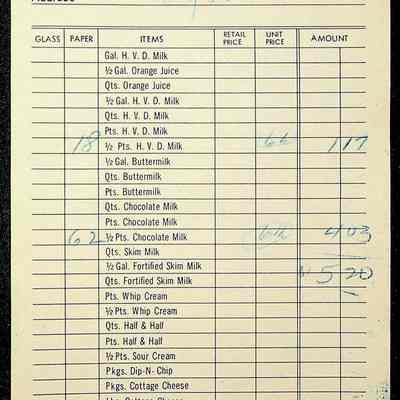 GLASS PAPER ITEMS RETAIL PRICE UNIT PRICE AMOUNT
Gal. H. V. D. Milk
½ Gal. Orange Juice
Qts. Orange Juice
½ Gal. H. V. D. Milk
Qts. H. V. D. Milk
Pts. H. V. D. Milk
18 ½ Pts. H. V. D. Milk 6½ 117
½ Gal. Buttermilk
Qts. Buttermilk
Pts. Buttermilk
Qts. Chocolate Milk
Pts. Chocolate Milk
62 ½ Pts. Chocolate Milk 6½ 403
Qts. Skim Milk
½ Gal. Fortified Skim Milk
Qts. Fortified Skim Milk 520
Pts. Whip Cream
½ Pts. Whip Cream
Qts. Half & Half
Pts. Half & Half
½ Pts. Sour Cream
Pkgs. Dip-N-Chip
Pkgs. Cottage Cheese